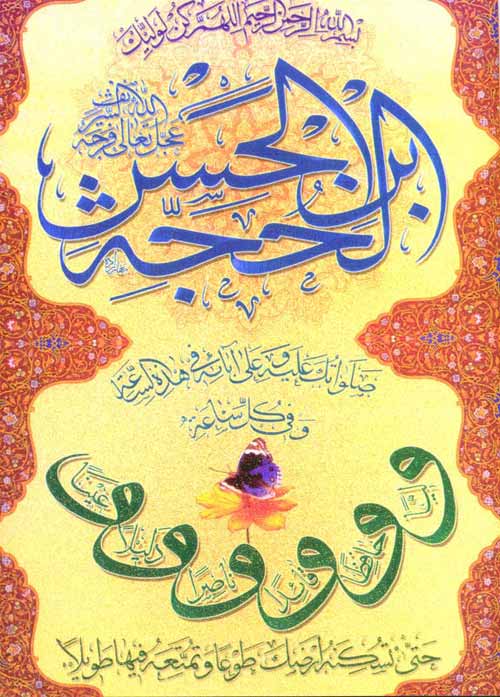 بسم الله الرحمن الرحیم اللهم کن لولیک
الحجة ابن الحسن
عجل الله تعالی فرجه الشریف
صلواتک علیه و علی آبائه فی هذه الساعة
و فی کل ساعة
ولیا و حافظا و قائدا و ناصرا و دلیلا و عینا
حتی تسکنه ارضک طوعا و تمتعه فیها طویلا